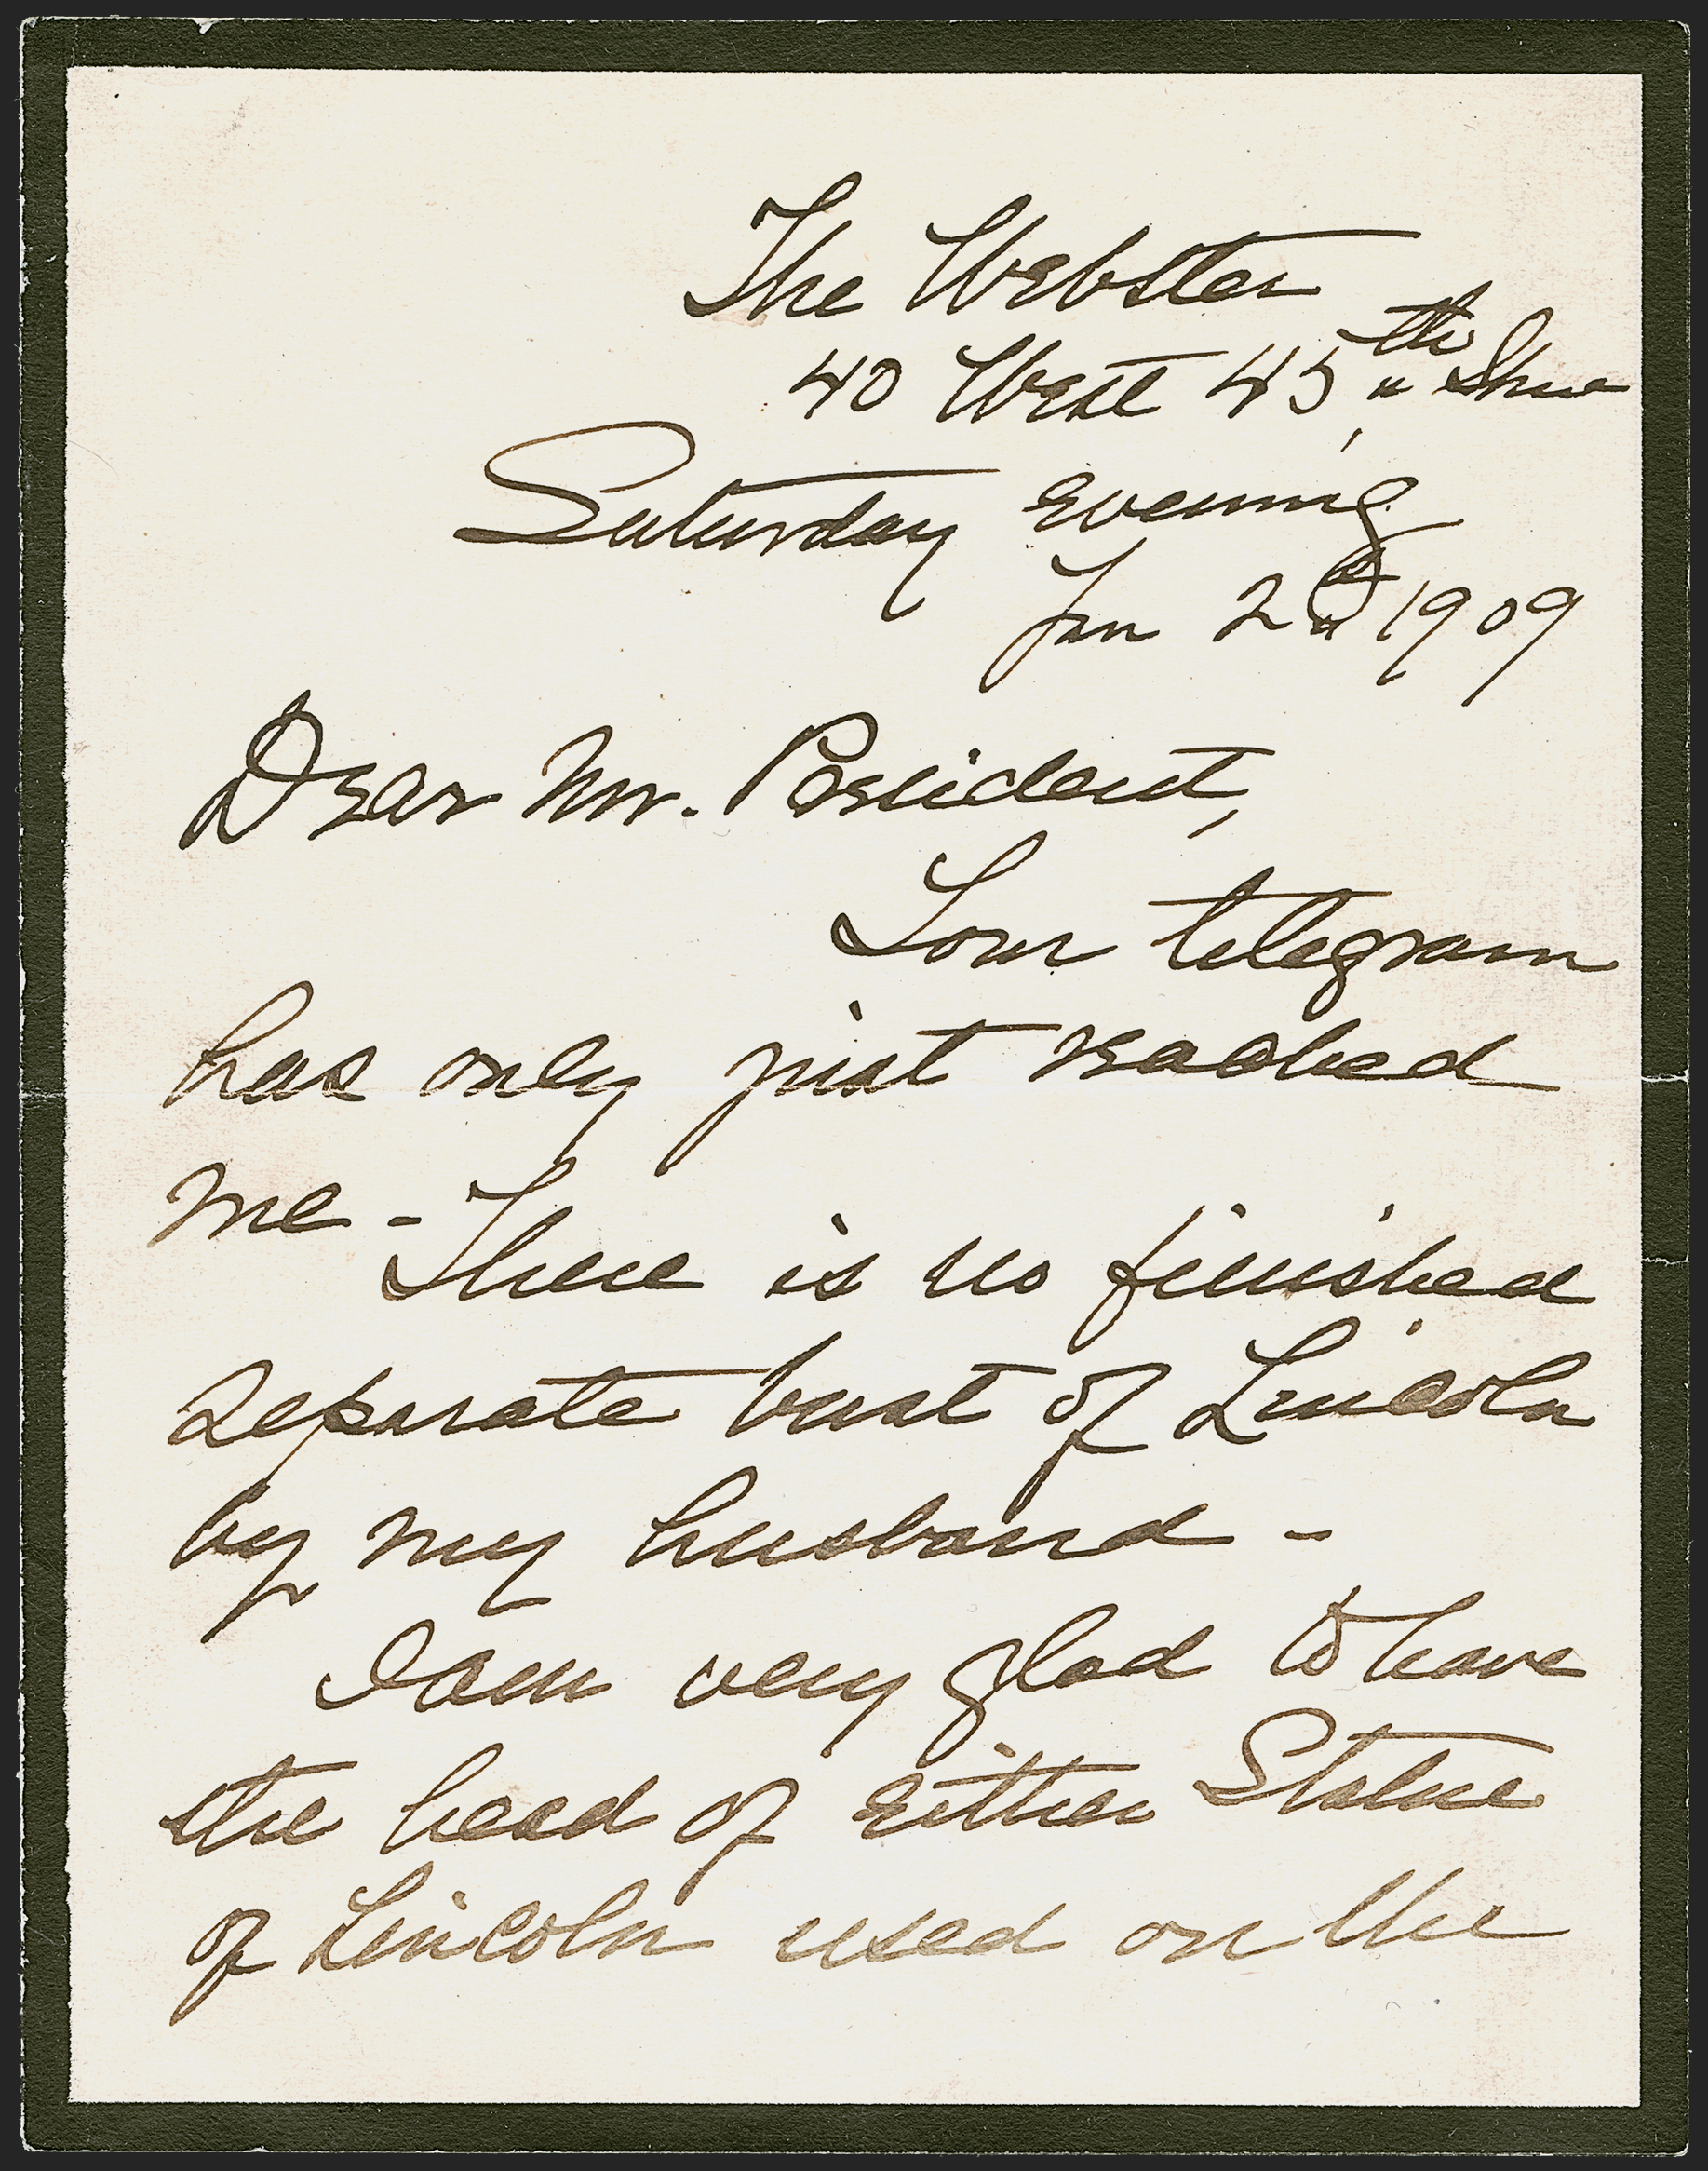 The Webster
40 West 45th Street
Saturday evening
Jan 2d 1909
Dear Mr. President,
Your telegram
has only just reached
me - There is no finished
separate bust of Lincoln
by my husband -
I am very glad to have
the head of either Statue
of Lincoln used on the